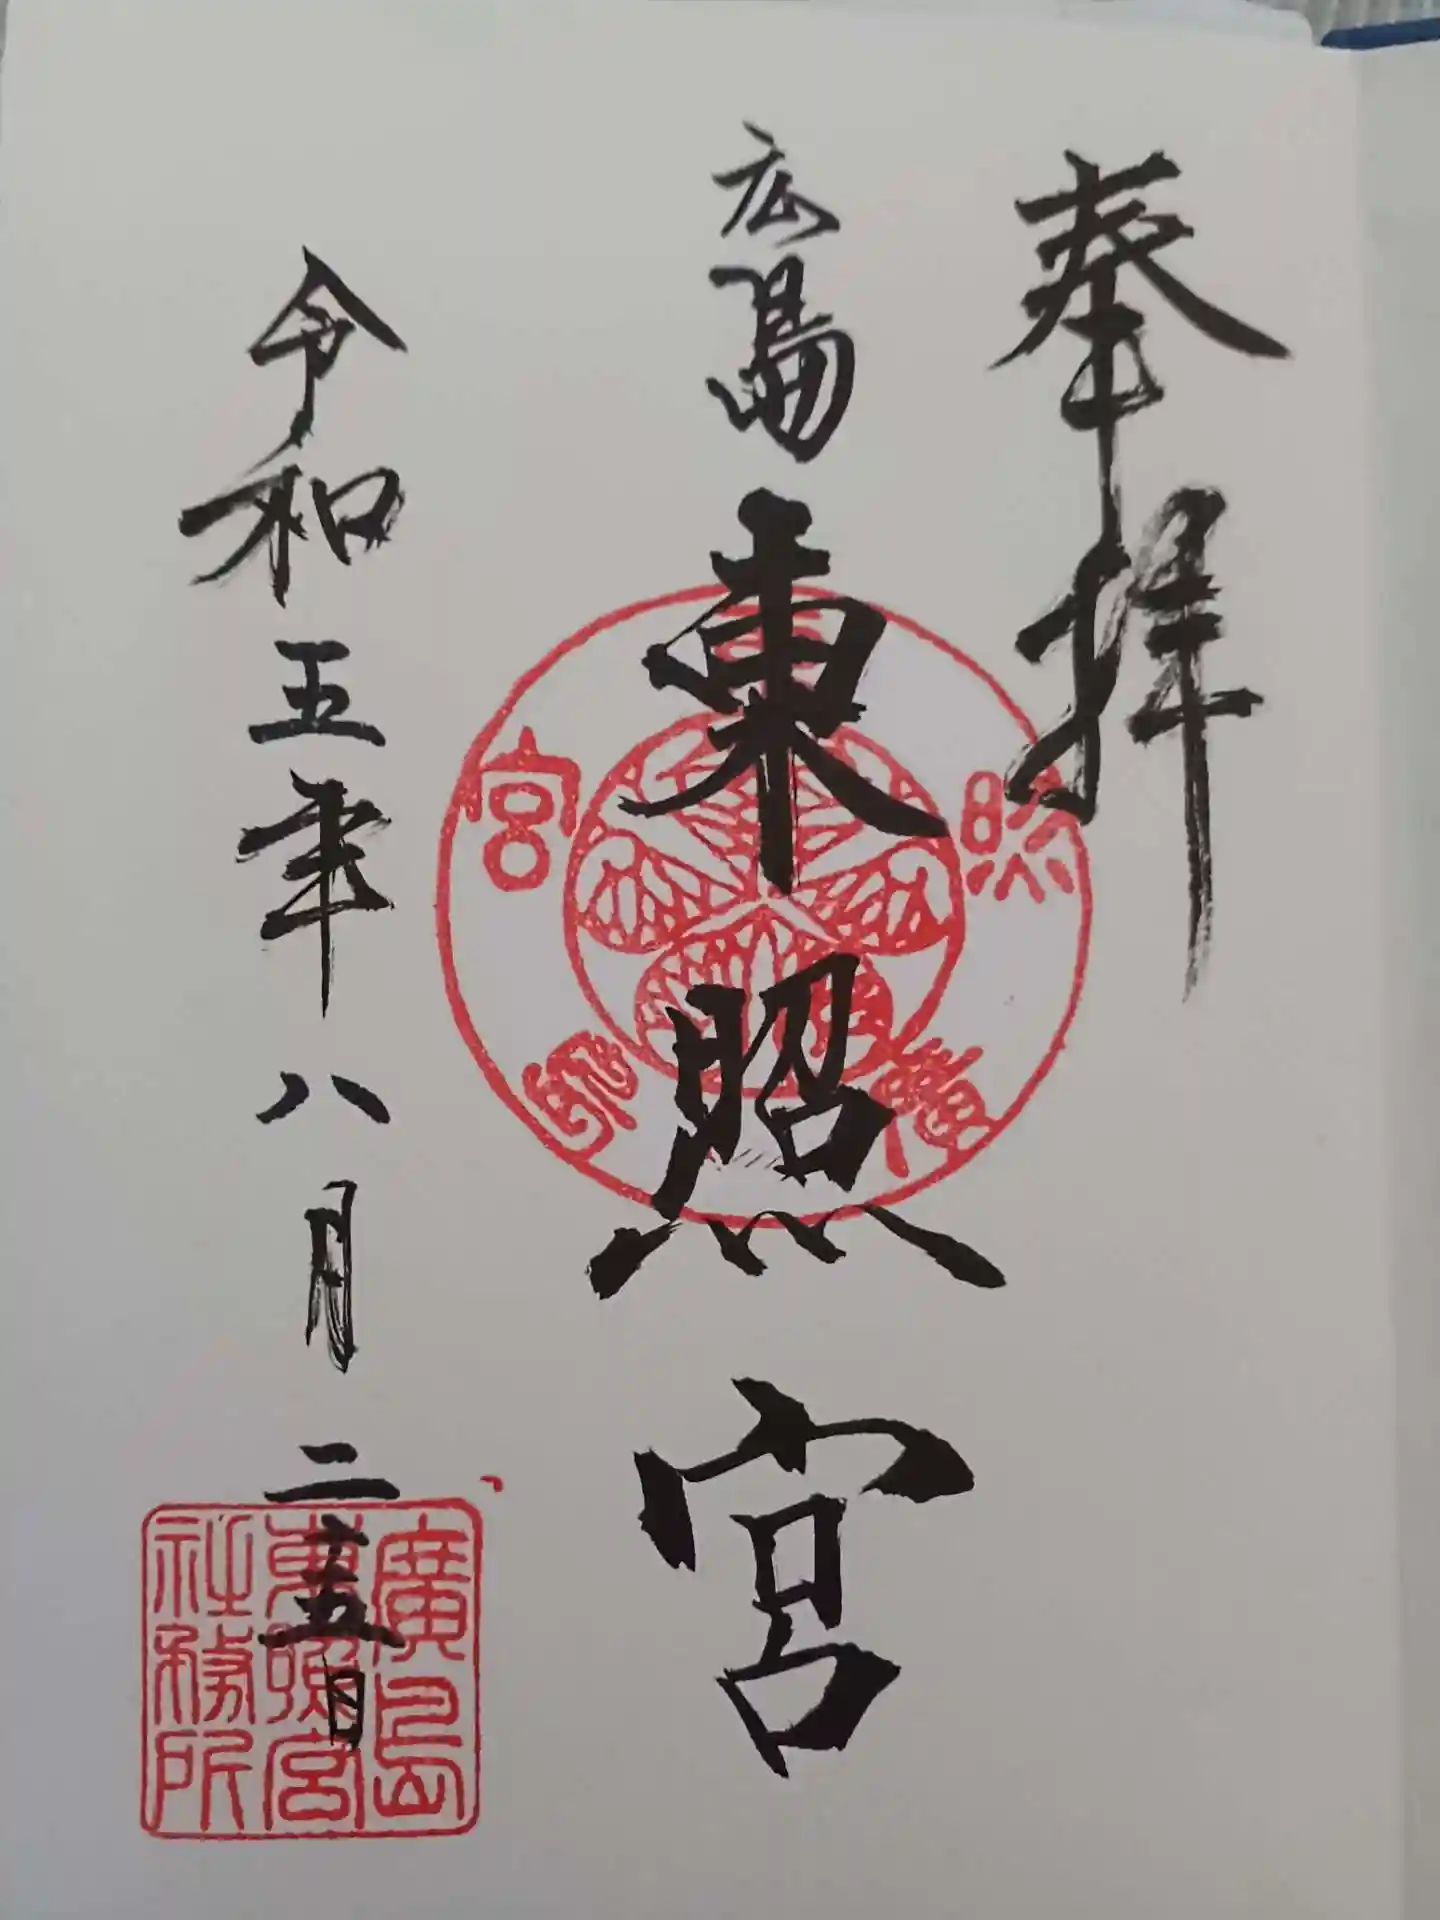 奉拝
広島
東照宮
令和五年八月二十五日
東照宮
廣島
廣島
東照宮
社務所